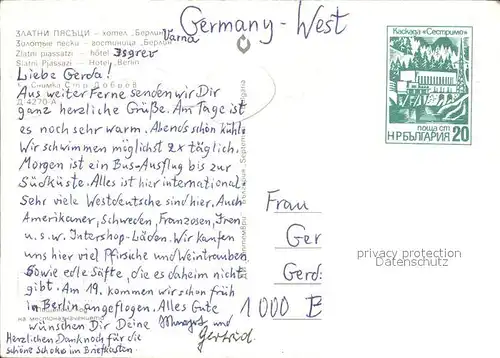 Germany - West
ЗЛАТНИ ПЯСЪЦИ — хотел „Берлин"
Varna
Золотые пески — гостиница „Берлин"
Zlatni piassatzi — hôtel Isgrev
Slatni Pjassazi — Hotel „Berlin"
Каскада «Сестримо»
поща ст
НР БЪЛГАРИЯ 20
Liebe Gerda!
Снимка Стр. Добрев
Д-4270-А
Aus weiter Ferne senden wir Dir
ganz herzliche Grüße. Am Tage ist
es noch sehr warm. Abends schön kühl.
Wir schwimmen möglichst 2x täglich.
Morgen ist ein Bus-Ausflug bis zur
Südküste. Alles ist hier international.
Sehr viele Westdeutsche sind hier. Auch
Amerikaner, Schweden, Franzosen, Iren
u.s.w. Intershop-Läden. Wir kaufen
uns hier viel Pfirsiche und Weintrauben.
Sowie edle Säfte, die es daheim nicht
gibt. Am 19. kommen wir schon früh
in Berlin angeflogen. Alles Gute
на местоназначението
wünschen Dir Deine und
Gertrid
Herzlichen Dank noch für die
schöne Schoko im Briefkasten.
Frau
Ger
Gerd:
1000 B
privacy protection
Datenschutz